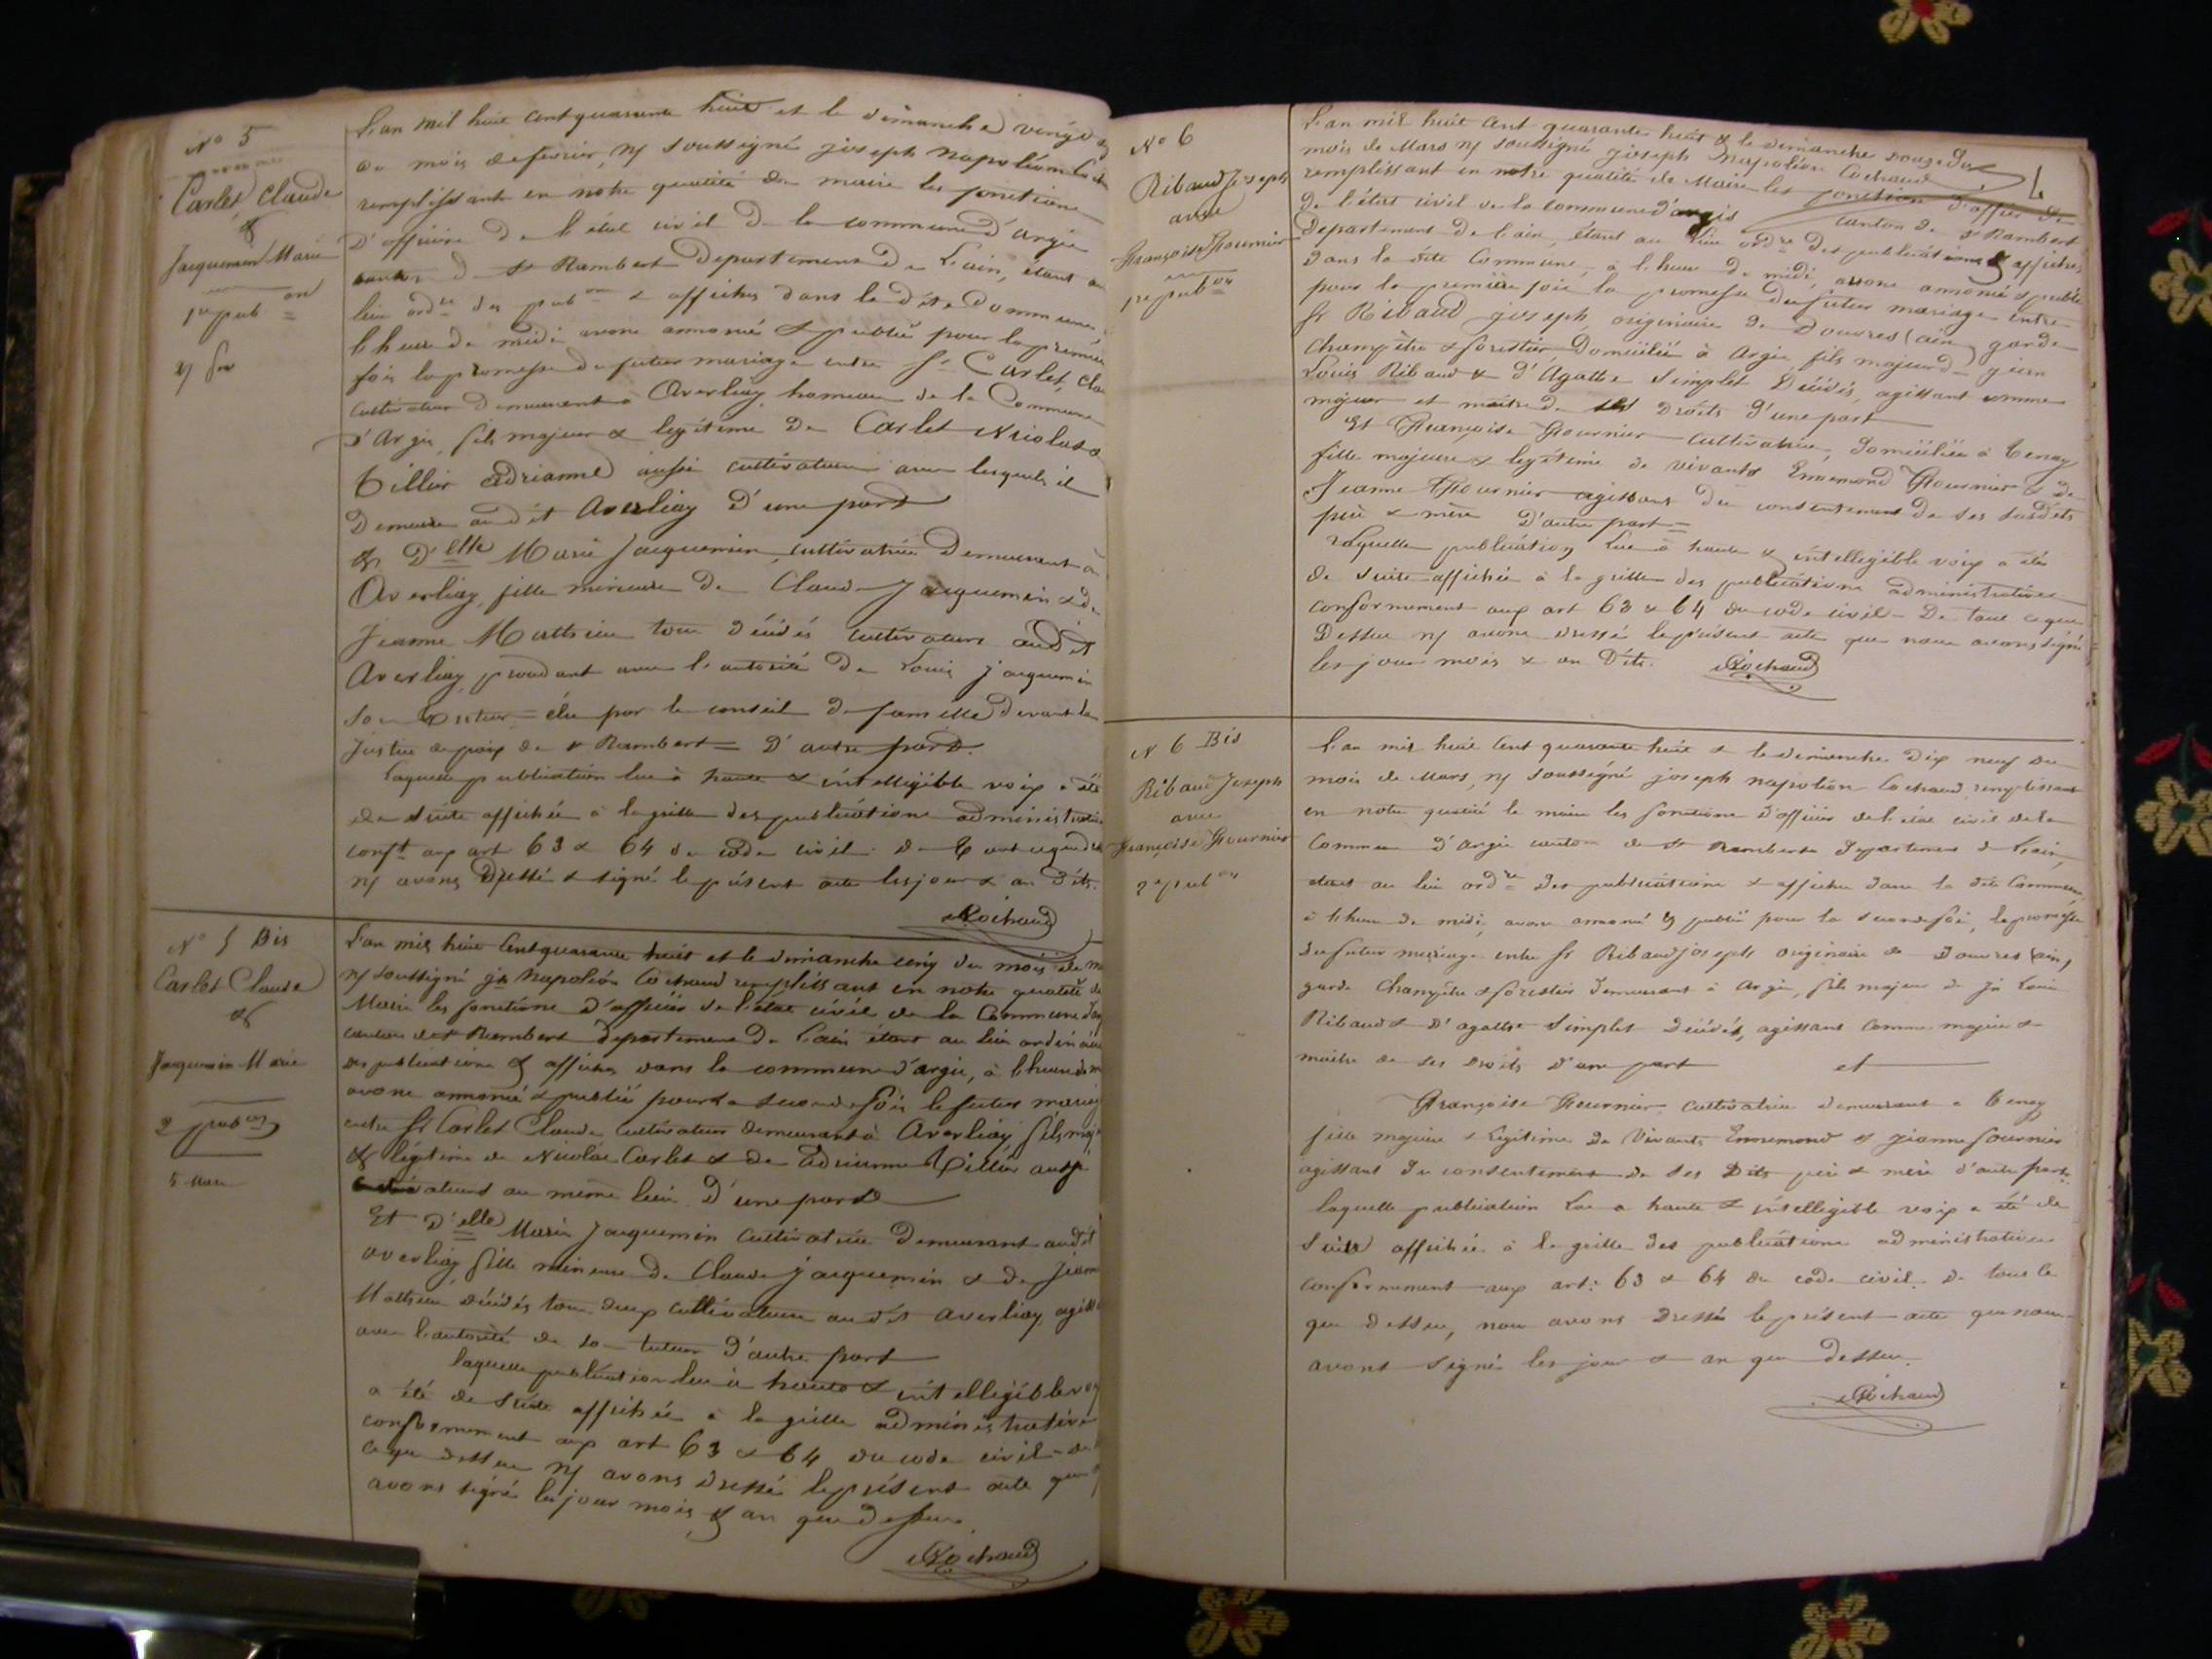 N° 5
Carlet Claude
&
Jacquemin Marie
1re pubon
27 fer
L'an mil huit cent quarante huit et le dimanche vingt
du mois de fevrier, ns soussigné joseph Napoléon
remplissant en notre qualité de maire les fonctions
D'officier De l'état civil De la commune D'argis
canton De St Rambert Departement De L'ain, étant au
lieu ordre des pubons & affiches dans la dite Commune
l'heure de midi avons annoncé & publié pour la premiere
fois la promesse du futur mariage entre Sr Carlet, Clau
cultivateur Demeurant à Averliay hameau de la Commune
D'Argis, fils majeur & legitime De Carlet Nicolas &
Tillier Adrianne aussi cultivateurs avec lesquels il
Demeure au dit Averliay D'une part
& D'elle Marie Jacquemin, cultivatrice Demeurant à
Averliay, fille mineure De Claude Jacquemin & de
Jeanne Mathieu tous Décédés cultivateurs audit
Averliay, procédant avec l'autorité De Louis jacquemin
son tuteur élu par le conseil De famille Devant la
Justice de paix de St Rambert = D'autre part.
Laquelle publication lue à haute & intelligible voix a été
de suite affichée à la grille des publications administratives
conft aux art 63 & 64 du code civil. De tout ce que dess
ns avons Dressé & signé le présent acte les jour & an dits.
Cochaud
N° 5 Bis
Carlet Claude
&
Jacquemin Marie
2 pubon
5 Mars
L'an mil huit cent quarante huit et le dimanche cinq du mois de m
ns soussigné jh Napoléon Cochaud remplissant en notre qualité de
Maire les fonctions d'officier de l'état civil de la Commune d'ar
canton de St Rambert Departement De L'ain étant au lieu ordinaire
des publications & affiches dans la commune d'argis, à l'heure de m
avons annoncé & publié pour la seconde fois le futur mariag
entre Sr Carlet Claude cultivateur demeurant à Averliay, fils maj
& légitime de Nicolas Carlet & de Adrianne Tillier aussi
cultivateurs au même lieu D'une part
Et D'elle Marie Jacquemin cultivatrice Demeurant audit
averliay, fille mineure De Claude jacquemin & de Jeann
Mathieu décédés tous deux cultivateurs au dit averliay, agiss
avec l'autorité de son tuteur D'autre part
laquelle publication lue à haute & intelligible voix
a été de suite affichée à la grille administrative
conformement aux art 63 & 64 du code civil - de
ce que dessus ns avons dressé le présent acte que
avons signé les jour mois & an que dessus.
Cochaud
N° 6
Ribaud Joseph
avec
Françoise Fournier
1re pubon
L'an mil huit cent quarante huit & le dimanche douze du
mois de Mars ns soussigné joseph Napoléon Cochaud
remplissant en notre qualité de Maire les fonctions d'officier De
de l'état civil de la commune d'argis canton de St Rambert
Departement De l'ain, étant au lieu ordre des publications & affiches
dans la dite Commune, à l'heure De midi, avons annoncé & publié
pour la première fois la promesse du futur mariage entre
Sr Ribaud joseph, originaire De Douvres (ain) garde
champêtre & forestier Domicilié à Argis fils majeur de jean
Louis Ribaud & d'Agathe Simplet Décédés, agissant comme
majeur et maître de ses droits d'une part
Et Françoise Fournier cultivatrice, Domiciliée à Tenay
fille majeure & legitime de vivants Ennemond Fournier & De
Jeanne Fournier agissant du consentement De ses susdits
père & mère D'autre part =
Laquelle publication lue à haute & intelligible voix a été
de suite affichée à la grille des publications administratives
conformement aux art 63 & 64 du code civil - De tout ce que
Dessus ns avons dressé le présent acte que nous avons signé
les jour mois & an dits. Cochaud
N 6 Bis
Ribaud Joseph
avec
Françoise Fournier
2e pubon
L'an mil huit cent quarante huit & le dimanche Dix neuf du
mois de Mars, ns soussigné joseph napoléon Cochaud remplissant
en notre qualité de maire les fonctions d'officier de l'état civil de la
Commune D'argis canton de St Rambert Departement De L'ain,
étant au lieu ordre Des publications & affiches Dans la dite Commune,
à l'heure De midi, avons annoncé & publié pour la seconde fois, la promesse
du futur mariage entre Sr Ribaud joseph originaire de Douvres (ain)
garde champêtre & forestier Demeurant à Argis, fils majeur de jn Louis
Ribaud & D'agathe Simplet Décédés, agissant comme majeur &
maître de ses Droits D'une part et
Françoise Fournier cultivatrice demeurant à Tenay
fille majeure & Légitime De Vivants Ennemond & jeanne fournier
agissant Du consentement De ses Dits père & mère d'autre part.
laquelle publication Lue a haute & intelligible voix a été de
suite affichée à la grille des publications administratives
conformement aux art. 63 & 64 du code civil. De tout ce
que dessus, nous avons Dressé le présent acte que nous
avons signé les jour & an que dessus.
Cochaud